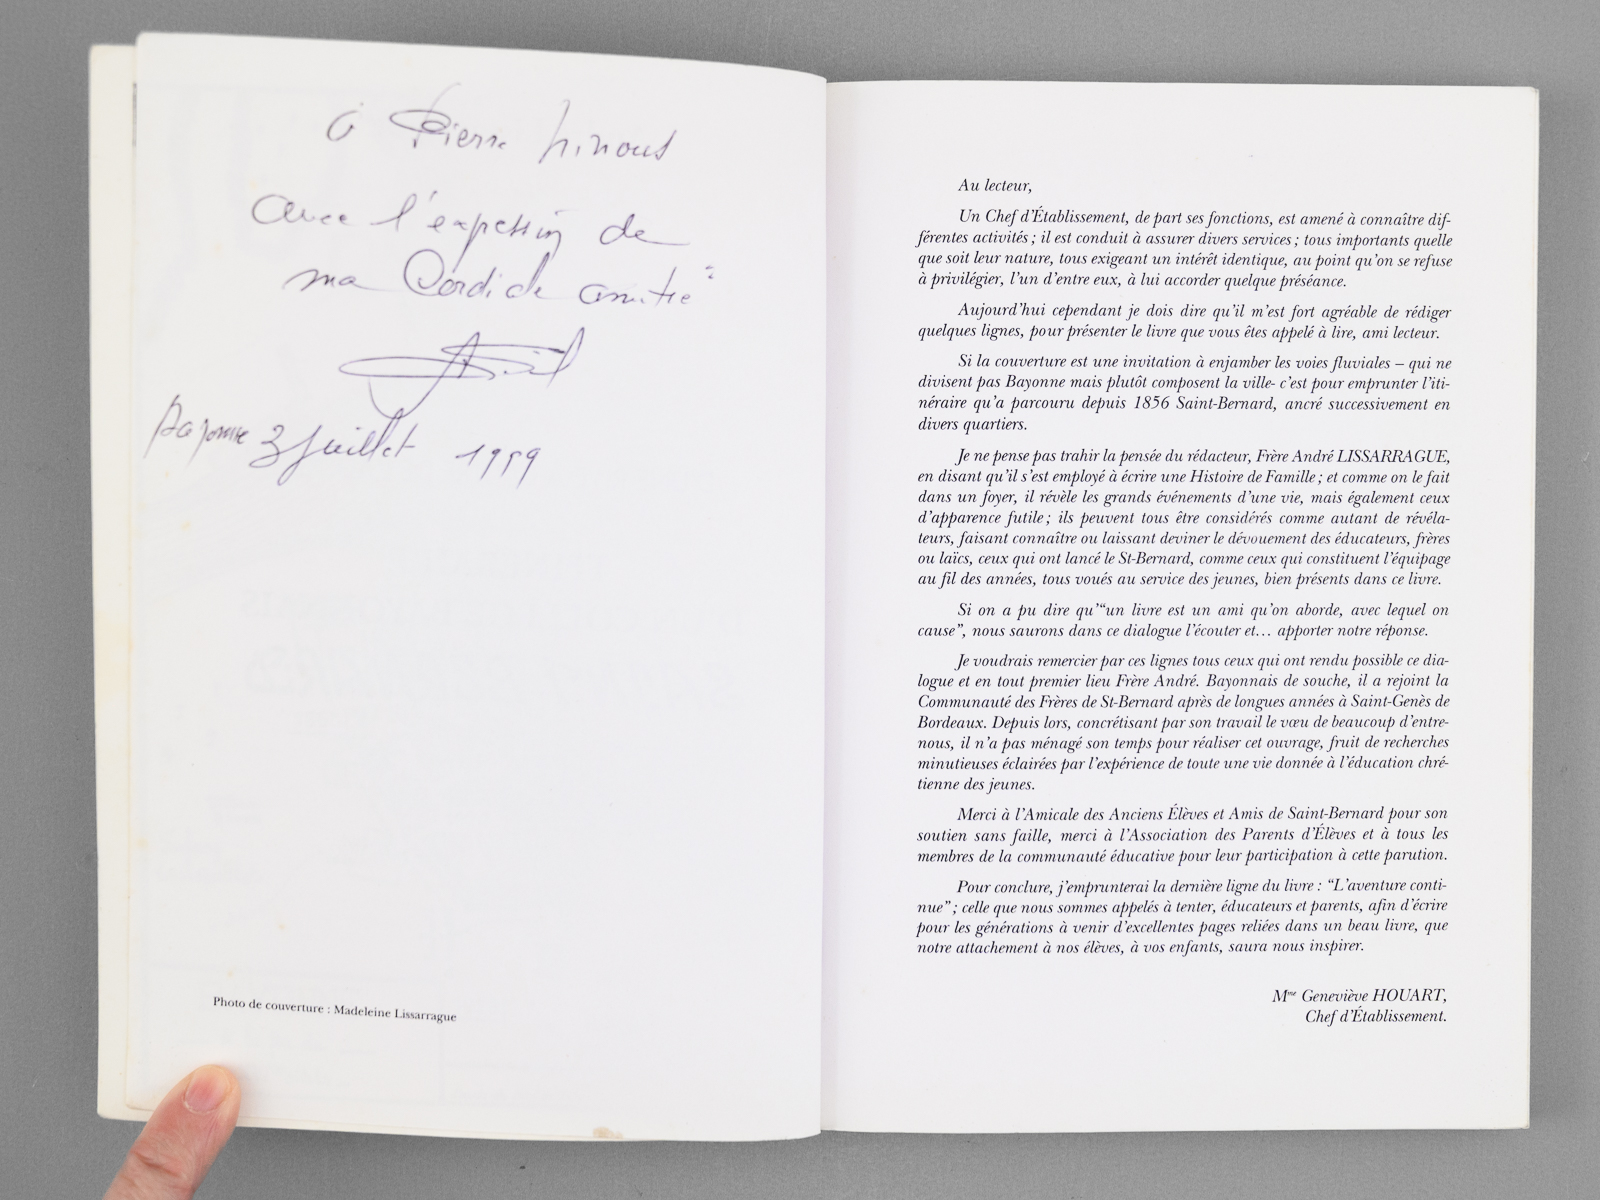 à Pierre
avec l'expression de
ma Cordiale amitié
Bayonne 3 Juillet 1999
Photo de couverture : Madeleine Lissarrague
Au lecteur,
Un Chef d'Établissement, de part ses fonctions, est amené à connaître dif-
férentes activités ; il est conduit à assurer divers services ; tous importants quelle
que soit leur nature, tous exigeant un intérêt identique, au point qu'on se refuse
à privilégier, l'un d'entre eux, à lui accorder quelque préséance.
Aujourd'hui cependant je dois dire qu'il m'est fort agréable de rédiger
quelques lignes, pour présenter le livre que vous êtes appelé à lire, ami lecteur.
Si la couverture est une invitation à enjamber les voies fluviales – qui ne
divisent pas Bayonne mais plutôt composent la ville- c'est pour emprunter l'iti-
néraire qu'a parcouru depuis 1856 Saint-Bernard, ancré successivement en
divers quartiers.
Je ne pense pas trahir la pensée du rédacteur, Frère André LISSARRAGUE,
en disant qu'il s'est employé à écrire une Histoire de Famille ; et comme on le fait
dans un foyer, il révèle les grands événements d'une vie, mais également ceux
d'apparence futile ; ils peuvent tous être considérés comme autant de révéla-
teurs, faisant connaître ou laissant deviner le dévouement des éducateurs, frères
ou laïcs, ceux qui ont lancé le St-Bernard, comme ceux qui constituent l'équipage
au fil des années, tous voués au service des jeunes, bien présents dans ce livre.
Si on a pu dire qu'“un livre est un ami qu'on aborde, avec lequel on
cause”, nous saurons dans ce dialogue l'écouter et… apporter notre réponse.
Je voudrais remercier par ces lignes tous ceux qui ont rendu possible ce dia-
logue et en tout premier lieu Frère André. Bayonnais de souche, il a rejoint la
Communauté des Frères de St-Bernard après de longues années à Saint-Genès de
Bordeaux. Depuis lors, concrétisant par son travail le vœu de beaucoup d'entre-
nous, il n'a pas ménagé son temps pour réaliser cet ouvrage, fruit de recherches
minutieuses éclairées par l'expérience de toute une vie donnée à l'éducation chré-
tienne des jeunes.
Merci à l'Amicale des Anciens Élèves et Amis de Saint-Bernard pour son
soutien sans faille, merci à l'Association des Parents d'Élèves et à tous les
membres de la communauté éducative pour leur participation à cette parution.
Pour conclure, j'emprunterai la dernière ligne du livre : “L'aventure conti-
nue” ; celle que nous sommes appelés à tenter, éducateurs et parents, afin d'écrire
pour les générations à venir d'excellentes pages reliées dans un beau livre, que
notre attachement à nos élèves, à vos enfants, saura nous inspirer.
Mme Geneviève HOUART,
Chef d'Établissement.